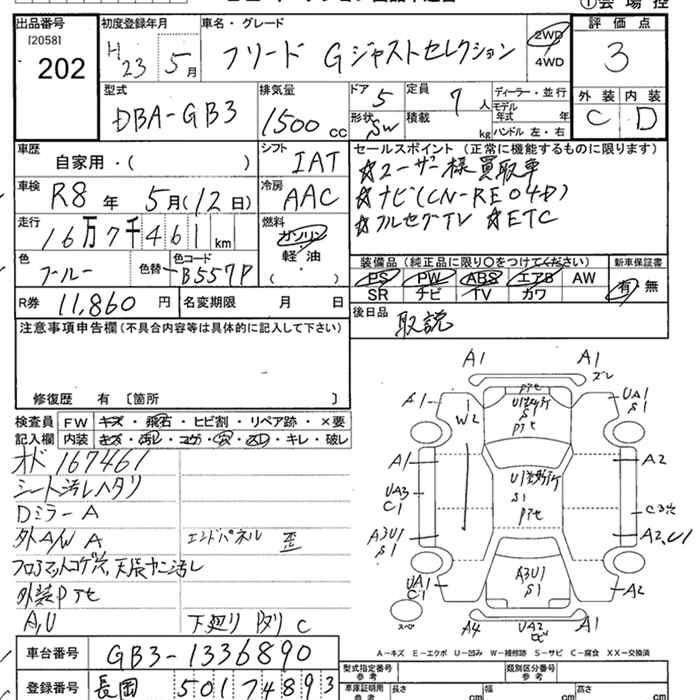 ①会場控
出品番号 初度登録年月 車名・グレード 評価点
[2058]
202
H23 5月 フリード Gジャストセレクション 2WD 4WD 3
型式 排気量 ドア 定員 ディーラー・並行 外装 内装
DBA-GB3 1500cc 5 7人 モデル年式 年 C D
形状 SW 積載 kg ハンドル 左・右
車歴 シフト セールスポイント (正常に機能するものに限ります)
自家用・( ) IAT ☆ユーザー様買取車
車検 R8年 5月(12日) 冷房 AAC ☆ナビ(CN-RE04D)
走行 燃料 ☆フルセグTV ☆ETC
16万7千461km ガソリン
色 色替 色コード 軽・油
ブルー B557P ( )
装備品 (純正品に限り○をつけてください) 新車保証書
PS PW ABS エアB AW 有 無
SR ナビ TV カワ
R券 11,860円 名変期限 月 日
後日品 取説
注意事項申告欄(不具合内容等は具体的に記入して下さい)
修復歴 有 〔箇所 〕
検査員 FW キズ・飛石・ヒビ割・リペア跡・×要
記入欄 内装 キズ・汚レ・コゲ・穴・スレ・キレ・破レ
オド167461
シート汚レヘタリ
Dミラー A
外A/W A エンドパネル 歪
フロアマットコゲ穴、天張ヤニ汚レ
外装PTセ
A,U 下廻り サビ C
車台番号 GB3-1336890
登録番号 長岡 501 74893
A1 A1
ズレ
A1 W2 UA1 S1
S1
A1 A2
UA3 C1 S1
A3U1 S1 A2,U1
UA1 C1 A3U1 S1 A2
スペア A4 UA2 A1
A-キズ E-エクボ U-凹み W-補修跡 S-サビ C-腐食 XX-交換済
型式指定番号 参考 類別区分番号 参考
車庫証明用 参考 長さ cm 幅 cm 高さ cm